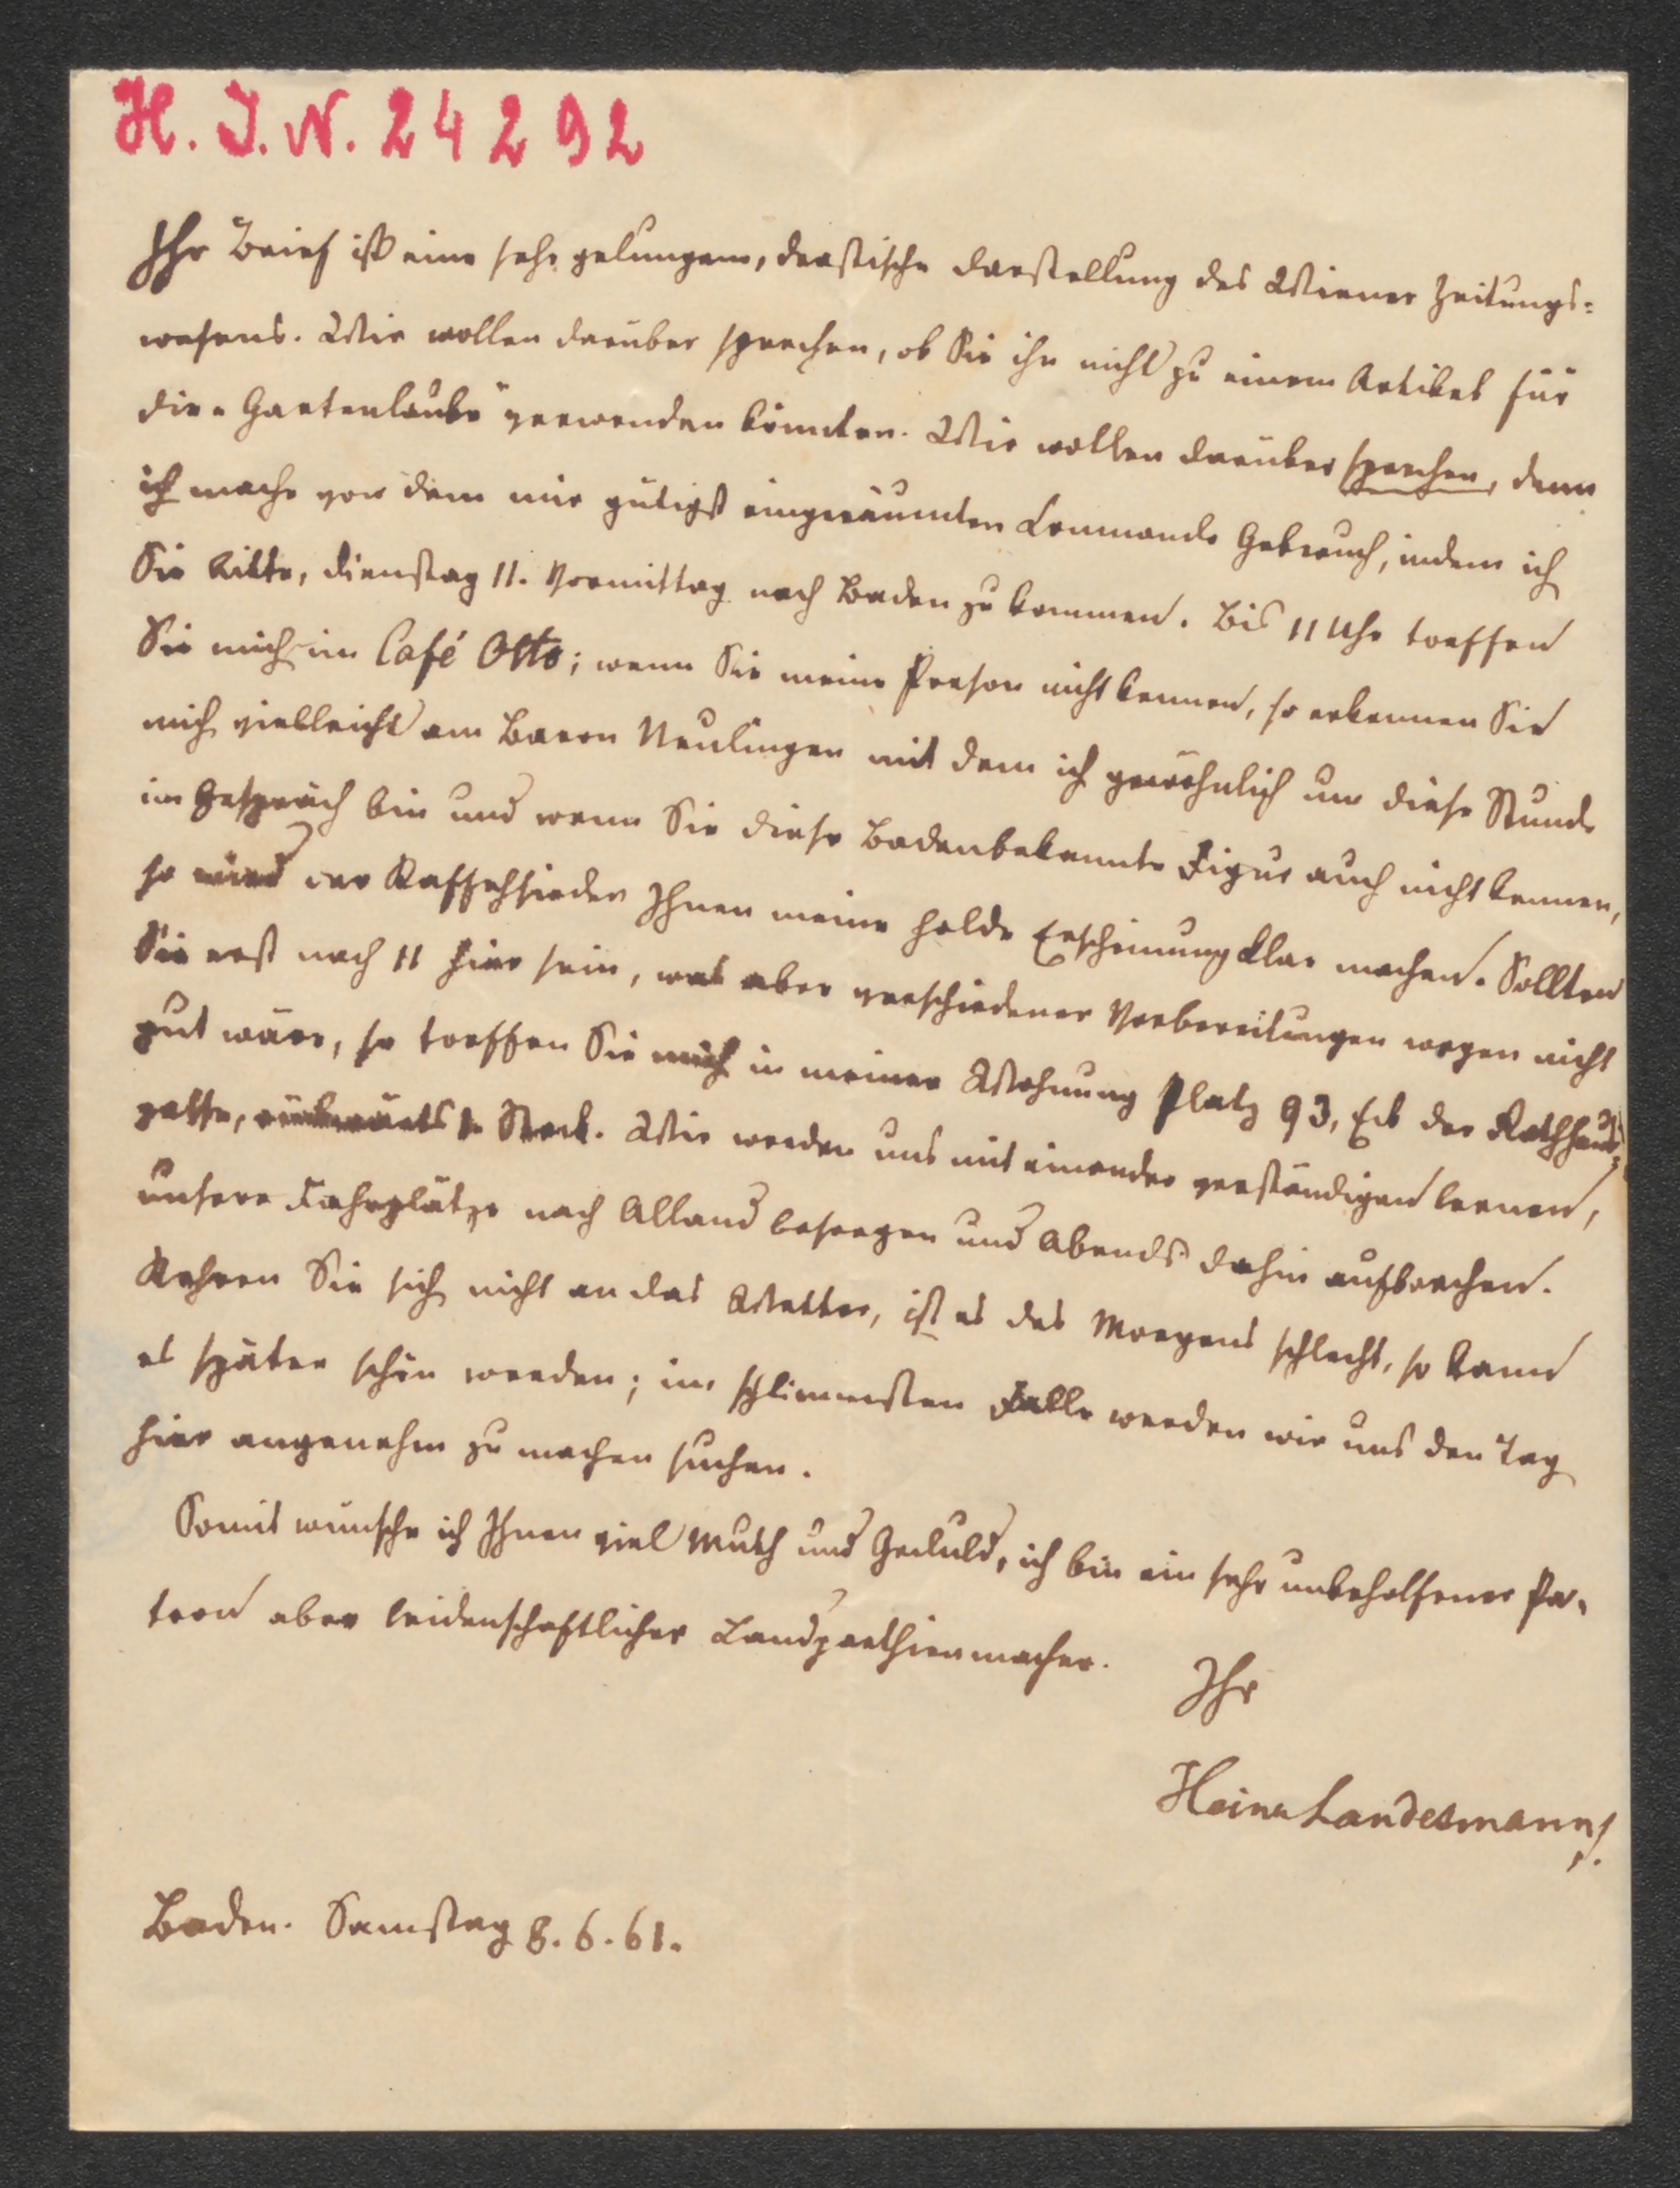 H. I. N. 24292
Ihr Brief ist eine sehr gelungene, drastische Darstellung des Wiener Zeitungs=
wesens. Wir wollen darüber sprechen, ob Sie ihn nicht zu einem Artikel für
die „Gartenlaube" verwenden könnten. Wir wollen darüber sprechen, denn
ich mache von dem mir gütigst eingeräumten Commando Gebrauch, indem ich
Sie bitte, Dienstag 11. Vormittag nach Baden zu kommen. Bis 11 Uhr treffen
Sie mich im Café Otto; wenn Sie meine Person nicht kennen, so erkennen Sie
mich vielleicht am Baron Neulingen mit dem ich gewöhnlich um diese Stunde
im Gespräch bin und wenn Sie diese Badenbekannte Figur auch nicht kennen,
so wird der Kaffehsieder Ihnen meine holde Erscheinung klar machen. Sollten
Sie erst nach 11 hier sein, was aber verschiedener Vorbereitungen wegen nicht
gut wäre, so treffen Sie mich in meiner Wohnung Platz 93, Eck der Rathhaus=
gasse, rückwärts 1. Stock. Wir werden uns mit einander verständigen lernen,
unsere Fahrplätze nach Alland besorgen und Abends dahin aufbrechen.
Kehren Sie sich nicht an das Wetter, ist es des Morgens schlecht, so kann
es später schön werden; im schlimmsten Falle werden wir uns den Tag
hier angenehm zu machen suchen.
Somit wünsche ich Ihnen viel Muth und Geduld, ich bin ein sehr unbeholfener Pa-
tron aber leidenschaftlicher Landparthienmacher.
Ihr
Heinr Landesmann
Baden. Samstag 8. 6. 61.